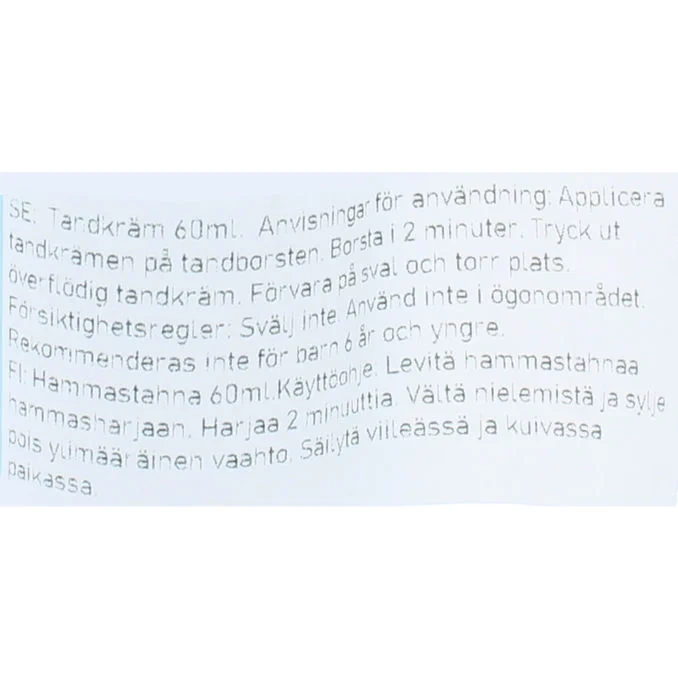 SE: Tandkräm 60ml. Anvisningar för användning: Applicera
tandkrämen på tandborsten. Borsta i 2 minuter. Tryck ut
överflödig tandkräm. Förvara på sval och torr plats.
Försiktighetsregler: Svälj inte. Använd inte i ögonområdet.
Rekommenderas inte för barn 6 år och yngre.
FI: Hammastahna 60ml. Käyttöohje. Levitä hammastahnaa
hammasharjaan. Harjaa 2 minuuttia. Vältä nielemistä ja sylje
pois ylimääräinen vaahto. Säilytä viileässä ja kuivassa
paikassa.